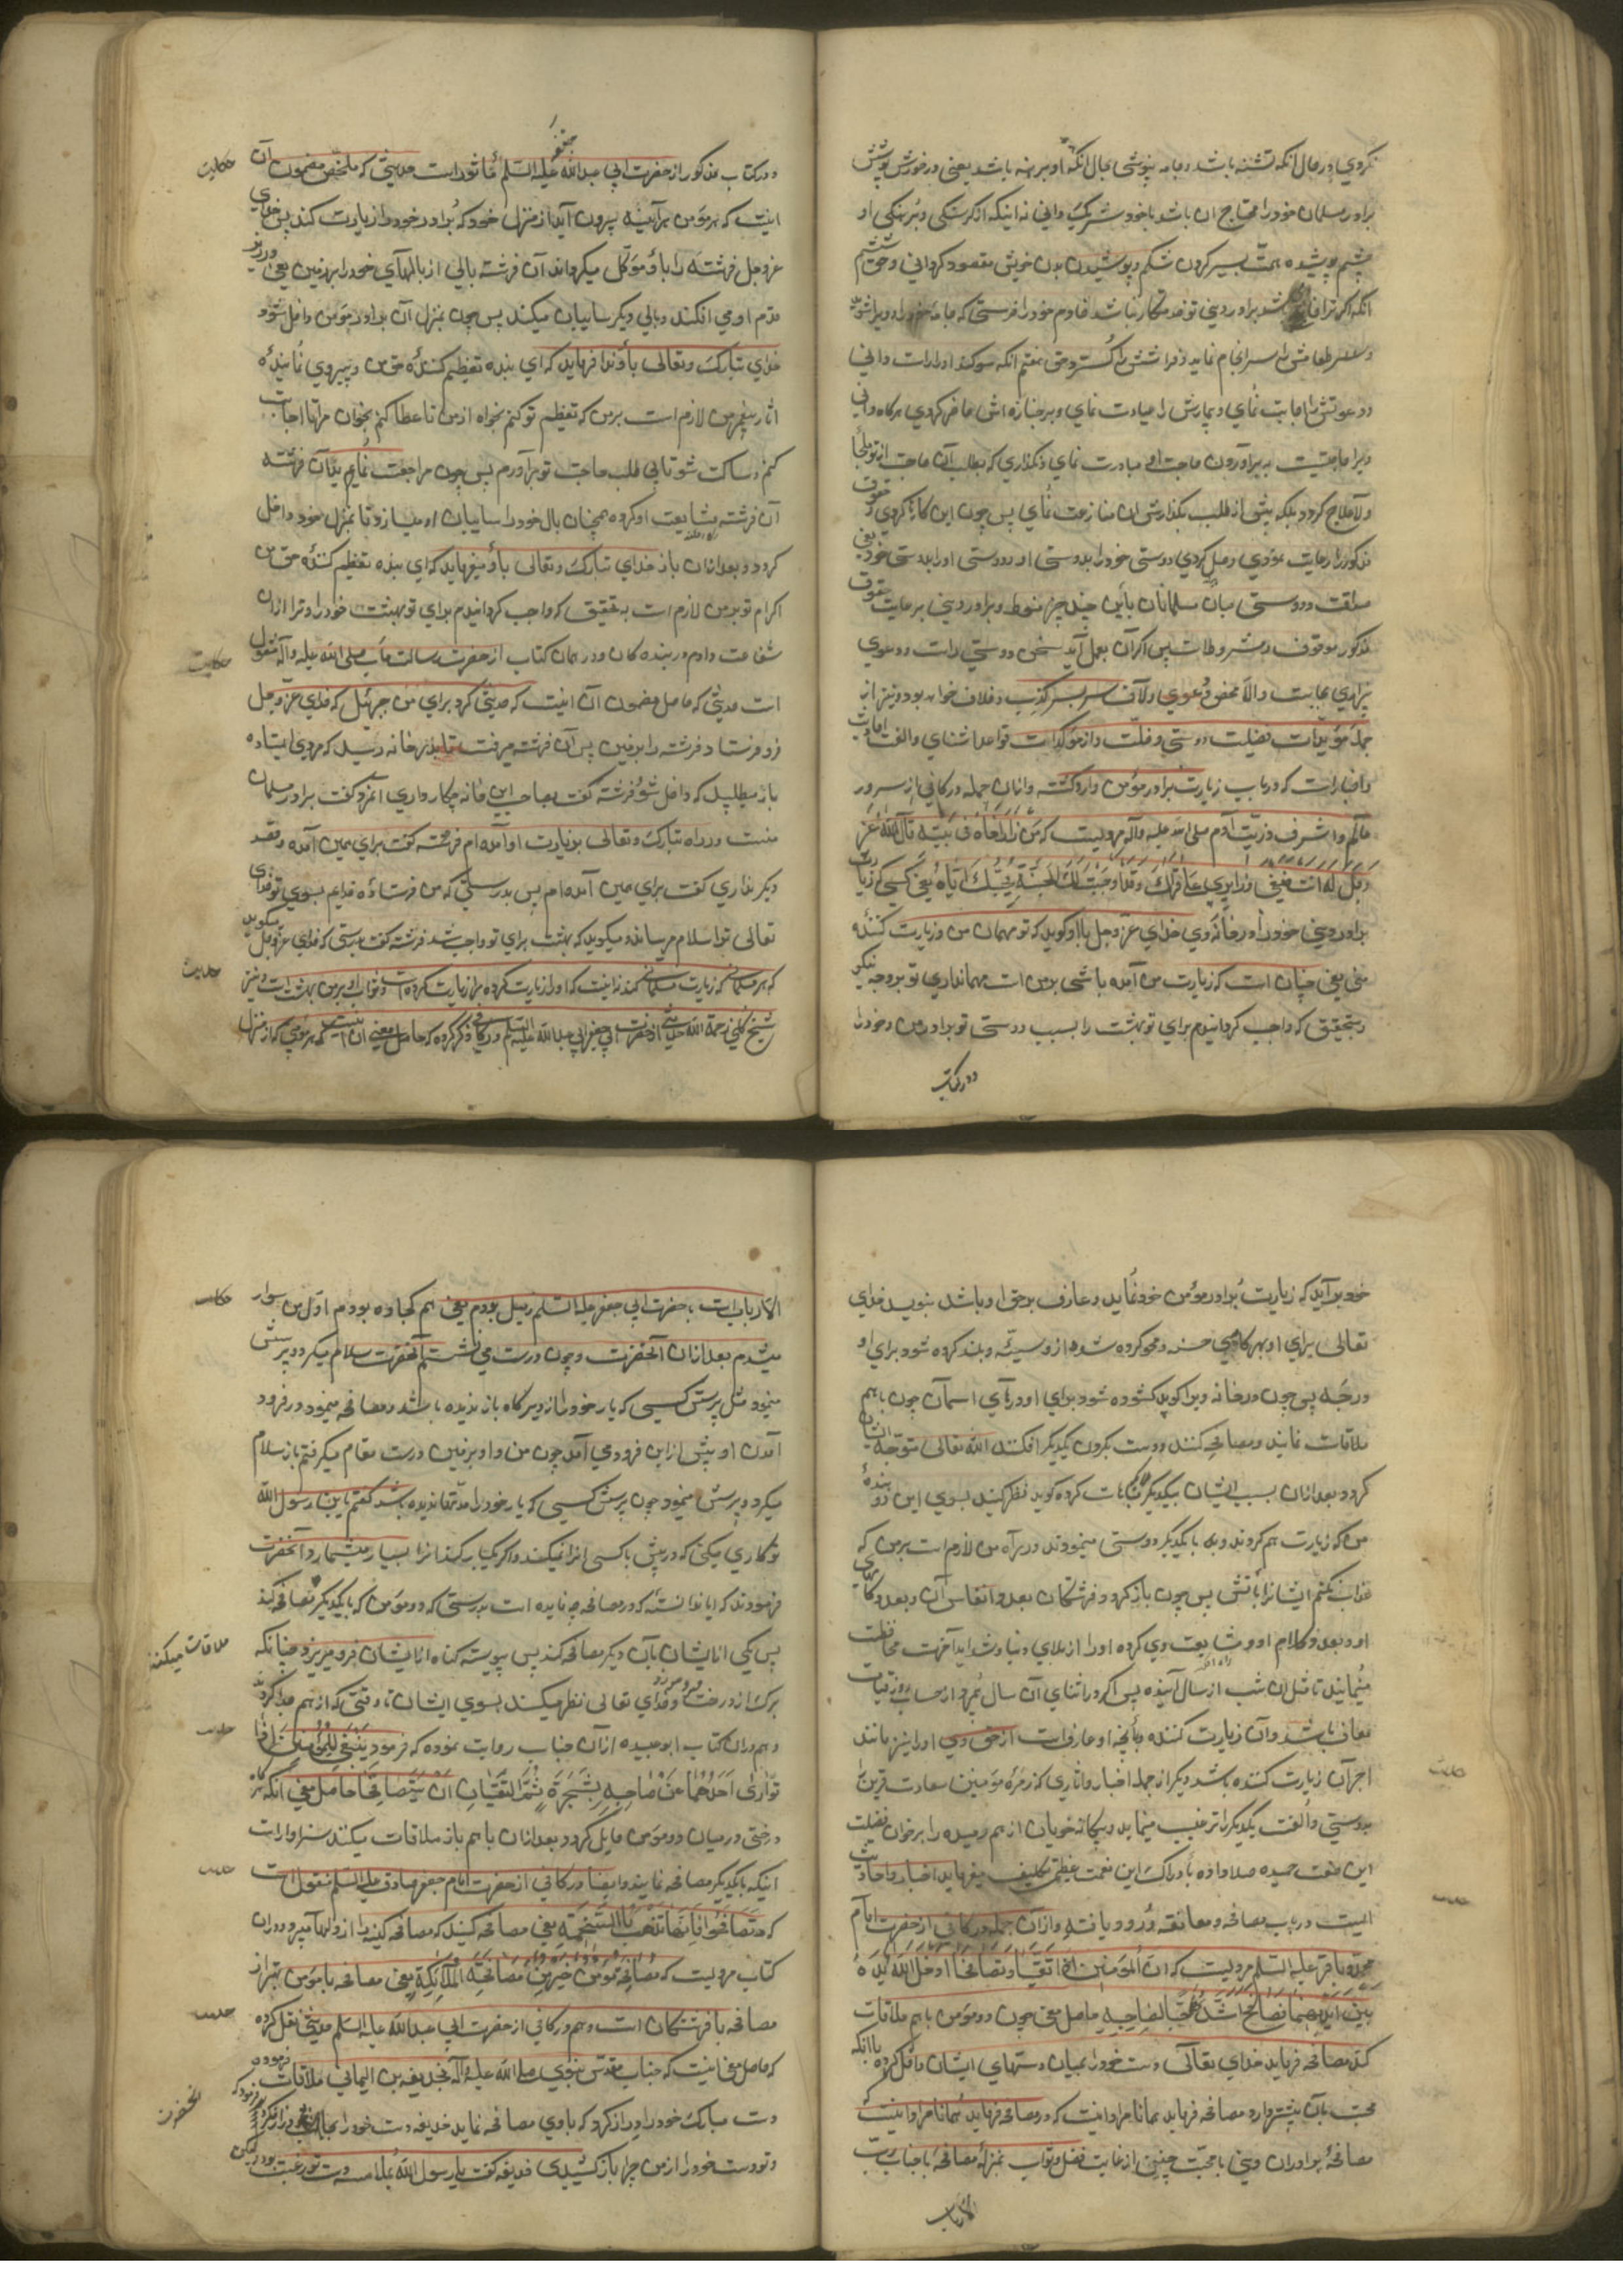 نکردي در حال انکه تشنه باشد و جامه نپوشي بحال انکه او برهنه باشد یعنی در خورش و پوشش
برادر مسلمان خود را محتاج ان باشد با خود شریک داني نه اینکه از کرسنکي و برهنکي او
چشم پوشیده همت بسیر کردن شکم و پوشیدن بدن خویش مقصود کرداني و حق ششم
انکه اکر ترا خادم باشد و برادر دیني تو خدمتکار نباشد خادم خود را فرستي که جامه او را شوید
و طعامش را سرانجام نماید و فراشش را کسترد و حق هفتم انکه سوکند او را راست داني
و دعوتش را اجابت نماي و بیمارش را عیادت نماي و بر جنازه اش حاضر کردي هر کاه داني
ویرا حاجتیست به براوردن حاجت او مبادرت نماي و نکذاري که بطلب آن حاجت از تو ملجأ
و لاعلاج کردد بلکه پیش از طلب بکذارش ان مسارعت نماي پس چون این کارها کردي و حقوق
مذکور را رعایت نمودي وصل کردي دوستي خود را بدوستي او و دوستي او را بدوستي خود یعنی
صداقت و دوستي میان مسلمانان باین چند چیز منوط و برادر دیني بر رعایت حقوق
مذکور موقوف و مشروطست پس اکر آن بعمل آید سخن دوستي راست و دعوي
برادري بجاست والا محض دعوي و لاف سربسر کذب و خلاف خواهد بود و نیز از
جمله مؤیدات فضیلت دوستي و خلت و از مؤکدات قواعد اشناي و الفت احادیث
و اخباراست که در باب زیارت برادر مؤمن وارد کشته و ازان جمله در کافي از سرور
عالم و اشرف ذریت آدم صلی الله علیه و آله مرویست که مَن زارَ اَخاهُ فی بَیتِهِ قالَ اللهُ عَزَّ
وَجَلَّ لَهُ اَنتَ ضَیفی وَزائِری عَلَیَّ قِراکَ وَقَد اَوجَبتُ لَکَ الجَنَّةَ بِحُبِّکَ اِیّاهُ یعنی کسی که زیارت
برادر دیني خود را در خانه وي خداي عز و جل با او کوید که تو مهمان من و زیارت کننده
مني یعني چنان است که زیارت من آمده باشي بر من است مهمانداري تو بر وجه نیکو
و بتحقیق که واجب کردانیدم براي تو بهشت را بسبب دوستي تو برادر من و خود را
و در کتاب
و در کتاب مذکور از حضرت ابي عبد الله جعفر علیه السلم مأثور است حدیثي که ملخص مضمون آن
اینست که هر مؤمن هرآئینه بیرون آید از منزل خود که برادر خود را زیارت کند پس خداي
عز و جل فرشته را باو مؤکل میکرداند آن فرشته بالي از بالهاي خود را بر زمین یعنی در زیر
قدم او مي افکند و بالي دیکر سایبان میکند پس چون بمنزل آن برادر مؤمن داخل شود
خداي تبارک و تعالی باو ندا فرماید که اي بنده تعظیم کننده حق من و پیروي نماینده
اثار پیغمبر من لازم است بر من که تعظیم تو کنم بخواه از من تا عطا کنم بخوان مرا تا اجابت
کنم و ساکت شو تا بي طلب حاجت تو برآورم پس چون مراجعت نماید آن فرشته
آن فرشته مشایعت او کرده همچنان بال خود را سایبان او میسازد تا بمنزل خود داخل
کردد و بعد ازان باز خداي تبارک و تعالی باو میفرماید که اي بنده تعظیم کننده حق من
اکرام تو بر من لازم است بتحقیق که واجب کردانیدم براي تو بهشت خود را و ترا ازان
شفاعت دادم در بنده کان و در همان کتاب از حضرت رسالت مآب صلی الله علیه و آله منقول
است حدیثي که حاصل مضمون آن اینست که حدیثي کرد براي من جبرئیل که خداي عز و جل
فرو فرستاد فرشته را بر زمین پس آن فرشته میرفت تا بدر خانه رسید که مردي ایستاده
بار میطلبید که داخل شود فرشته کفت بصاحب این خانه چکار داري آنمرد کفت برادر مسلمان
منست در راه تبارک و تعالی بزیارت او آمده ام فرشته کفت براي همین آمده و قصد
دیکر نداري کفت براي همین آمده ام پس بدرستي که من فرستاده خدایم بسوي تو خداي
تعالی ترا سلام میرساند و میکوید که بهشت براي تو واجب شد فرشته کفت بدرستي که خداي عز و جل میکوید
که هر مسلماني که زیارت مسلماني کند نه اینست که او را زیارت کرده مرا زیارت کرده است و ثواب او بر من بهشت است و نیز
شیخ کلیني رحمة الله حدیثي از حضرت ابي جعفر و ابي عبد الله علیه السلم در کافي ذکر کرده که حاصل معني ان اینست که هر مؤمني که از منزل
حکایت
حکایت
حدیث
خود برآید که زیارت برادر مؤمن خود نماید و عارف بر حق او باشد بنویسد خداي
تعالی براي او بهر کامي حسنه و محو کرده شود از و سیئه و بلند کرده شود براي او
درجه پس چون در خانه ویرا کوبد کشوده شود براي او درهاي اسمان چون باهم
ملاقات نمایند و مصافحه کنند و دست بکردن یکدیکر افکنند الله تعالی متوجه ایشان
کردد بعد ازان بسبب ایشان بیکدیکر مباهات کرده کوید نظر کنید بسوي این دو بنده
من که زیارت هم کردند و به یکدیکر دوستي مینمودند در راه من لازم است بر من که
عذاب نکنم ایشانرا باتش پس چون باز کردد فرشتکان بعدد انفاس آن و بعدد کامهاي
او و بعدد کلام او و مشایعت وي کرده او را از بلاي دنیا و شداید آخرت محافظت
مینمایند تا مثل ان شب از سال آینده پس اکر در اثناي آن سال بمیرد از حساب روز قیامت
معاف باشد و آن زیارت کننده بآنچه او عارف است از حق وي او را نیز مانند
اجر آن زیارت کننده باشد دیکر از جمله اخبار و اثاري که زمره مؤمنین سعادت قرین را
بدوستي و الفت یکدیکر ترغیب مینماید و بیکانه خویان از هم رمیده را بر خوان فضیلت
این صفت حمیده صلا داده بادراک این نعمت عظمی تکلیف میفرماید اخبار و احادیث
ایست در باب مصافحه و معانقه ورود یافته و ازان جمله در کافي از حضرت امام
محمد باقر علیه السلم مرویست که اِنَّ المُؤمِنَینِ اِذا التَقَیا وَتَصافَحا اَدخَلَ اللهُ یَدَهُ
بَینَ اَیدیهِما فَصافَحَ اَشَدَّهُما حُبّاً لِصاحِبِهِ حاصل معني چون دو مؤمن باهم ملاقات
کند مصافحه فرماید خداي تعالی دست خود را بمیان دستهاي ایشان داخل کرده باانکه
محبت بآن بیشتر دارد مصافحه فرماید همانا مراد اینست که در مصافحه فرماید همانا مراد اینست
مصافحه برادران دیني با محبت چنین از غایت فضل و ثواب بمنزله مصافحه با جناب رب
الارباب
الارباب است با حضرت ابي جعفر علیه السلم زمیل بودم یعني هم کجاوه بودم اول من سوار
میشدم بعد ازان آنحضرت و چون درست مي نشستم آنحضرت سلام میکرد و پرسش
مینمود مثل پرسش کسي که یار خود را از دیر کاه باز ندیده باشد و مصافحه مینمود و در فرود
آمدن او پیش از این فرود مي آمد چون من و او بر زمین درست مقام میکرفتم باز سلام
میکرد و پرسش مینمود چون پرسش کسي که یار خود را مدتها ندیده باشد کفتم یابن رسول الله
تو کاري میکني که در پیش ما کسي انرا نمیکند و اکر یکبار کند انرا بسیار میشمارد آنحضرت
فرمودند که ایا ندانسته که در مصافحه چه فایده است بدرستي که دو مؤمن که با یکدیکر مصافحه کند
پس یکي از ایشان بآن دیکر مصافحه کند پس پیوسته کناه از ایشان فرو میریزد چنانکه
برک از درخت فرو میریزد و خداي تعالی نظر میکند بسوي ایشان تا وقتي که از هم جدا کردند
و هم دران کتاب ابو عبیده از آن جناب روایت نموده که فرمود یَنبَغی لِلمُؤمِنَینِ اِذا
تَواری اَحَدُهُما عَن صاحِبِهِ بِشَجَرَةٍ ثُمَّ التَقَیا اَن یَتَصافَحا حاصل معني انکه هر کاه
درختي در میان دو مؤمن حایل کردد بعد ازان باهم باز ملاقات میکنند سزاوار است
اینکه با یکدیکر مصافحه نمایند و ایضا در کافي از حضرت امام جعفر صادق علیه السلم منقول است
که تَصافَحوا فَاِنَّها تَذهَبُ بِالسَّخیمَةِ یعني مصافحه کنید که مصافحه کینه را از دلها میبرد و دران
کتاب مرویست که مُصافَحَةُ المُؤمِنِ خَیرٌ مِن مُصافَحَةِ المَلائِکَةِ یعني مصافحه با مؤمن بهتر از
مصافحه با فرشتکان است و هم در کافي از حضرت ابي عبد الله علیه السلم حدیثي نقل کرده
که حاصل معني اینست که جناب مقدس نبوي صلی الله علیه و آله بحذیفه بن الیماني ملاقات فرموده
دست مبارک خود را دراز کرد که با وي مصافحه نماید حذیفه دست خود را
و تو دست خود را از من چرا باز کشیدي حذیفه کفت یا رسول الله بملامسه دست تو رغبت بود لیکن
حکایت
ملاقات میکنند
حدیث
حدیث
حدیث
انحضرت